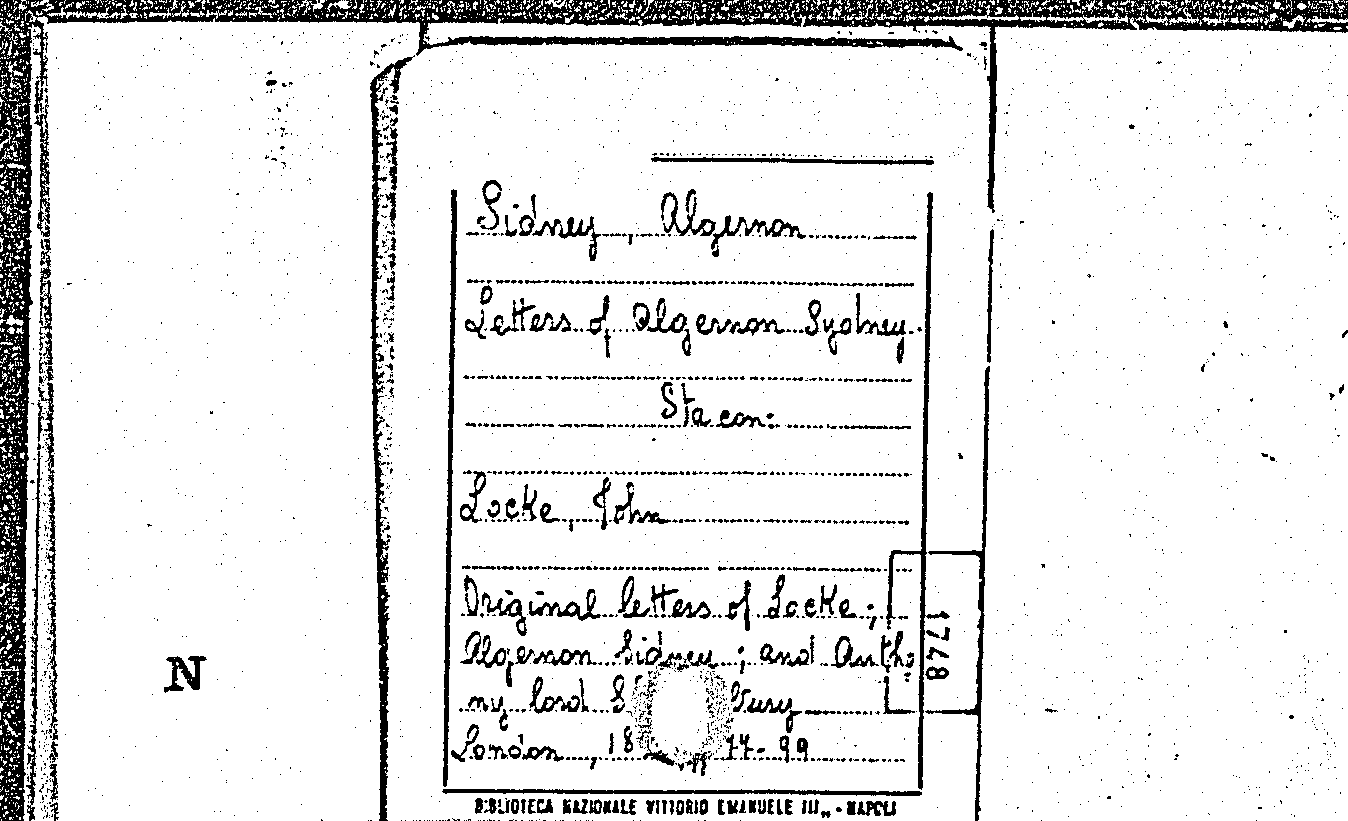 Sidney, Algernon
Letters of Algernon Sydney.
Sta con:
Locke, John
Original letters of Locke;
Algernon Sidney; and Antho
ny lord
London, 77-99
1748
N
BIBLIOTECA NAZIONALE VITTORIO EMANUELE III„ - NAPOLI